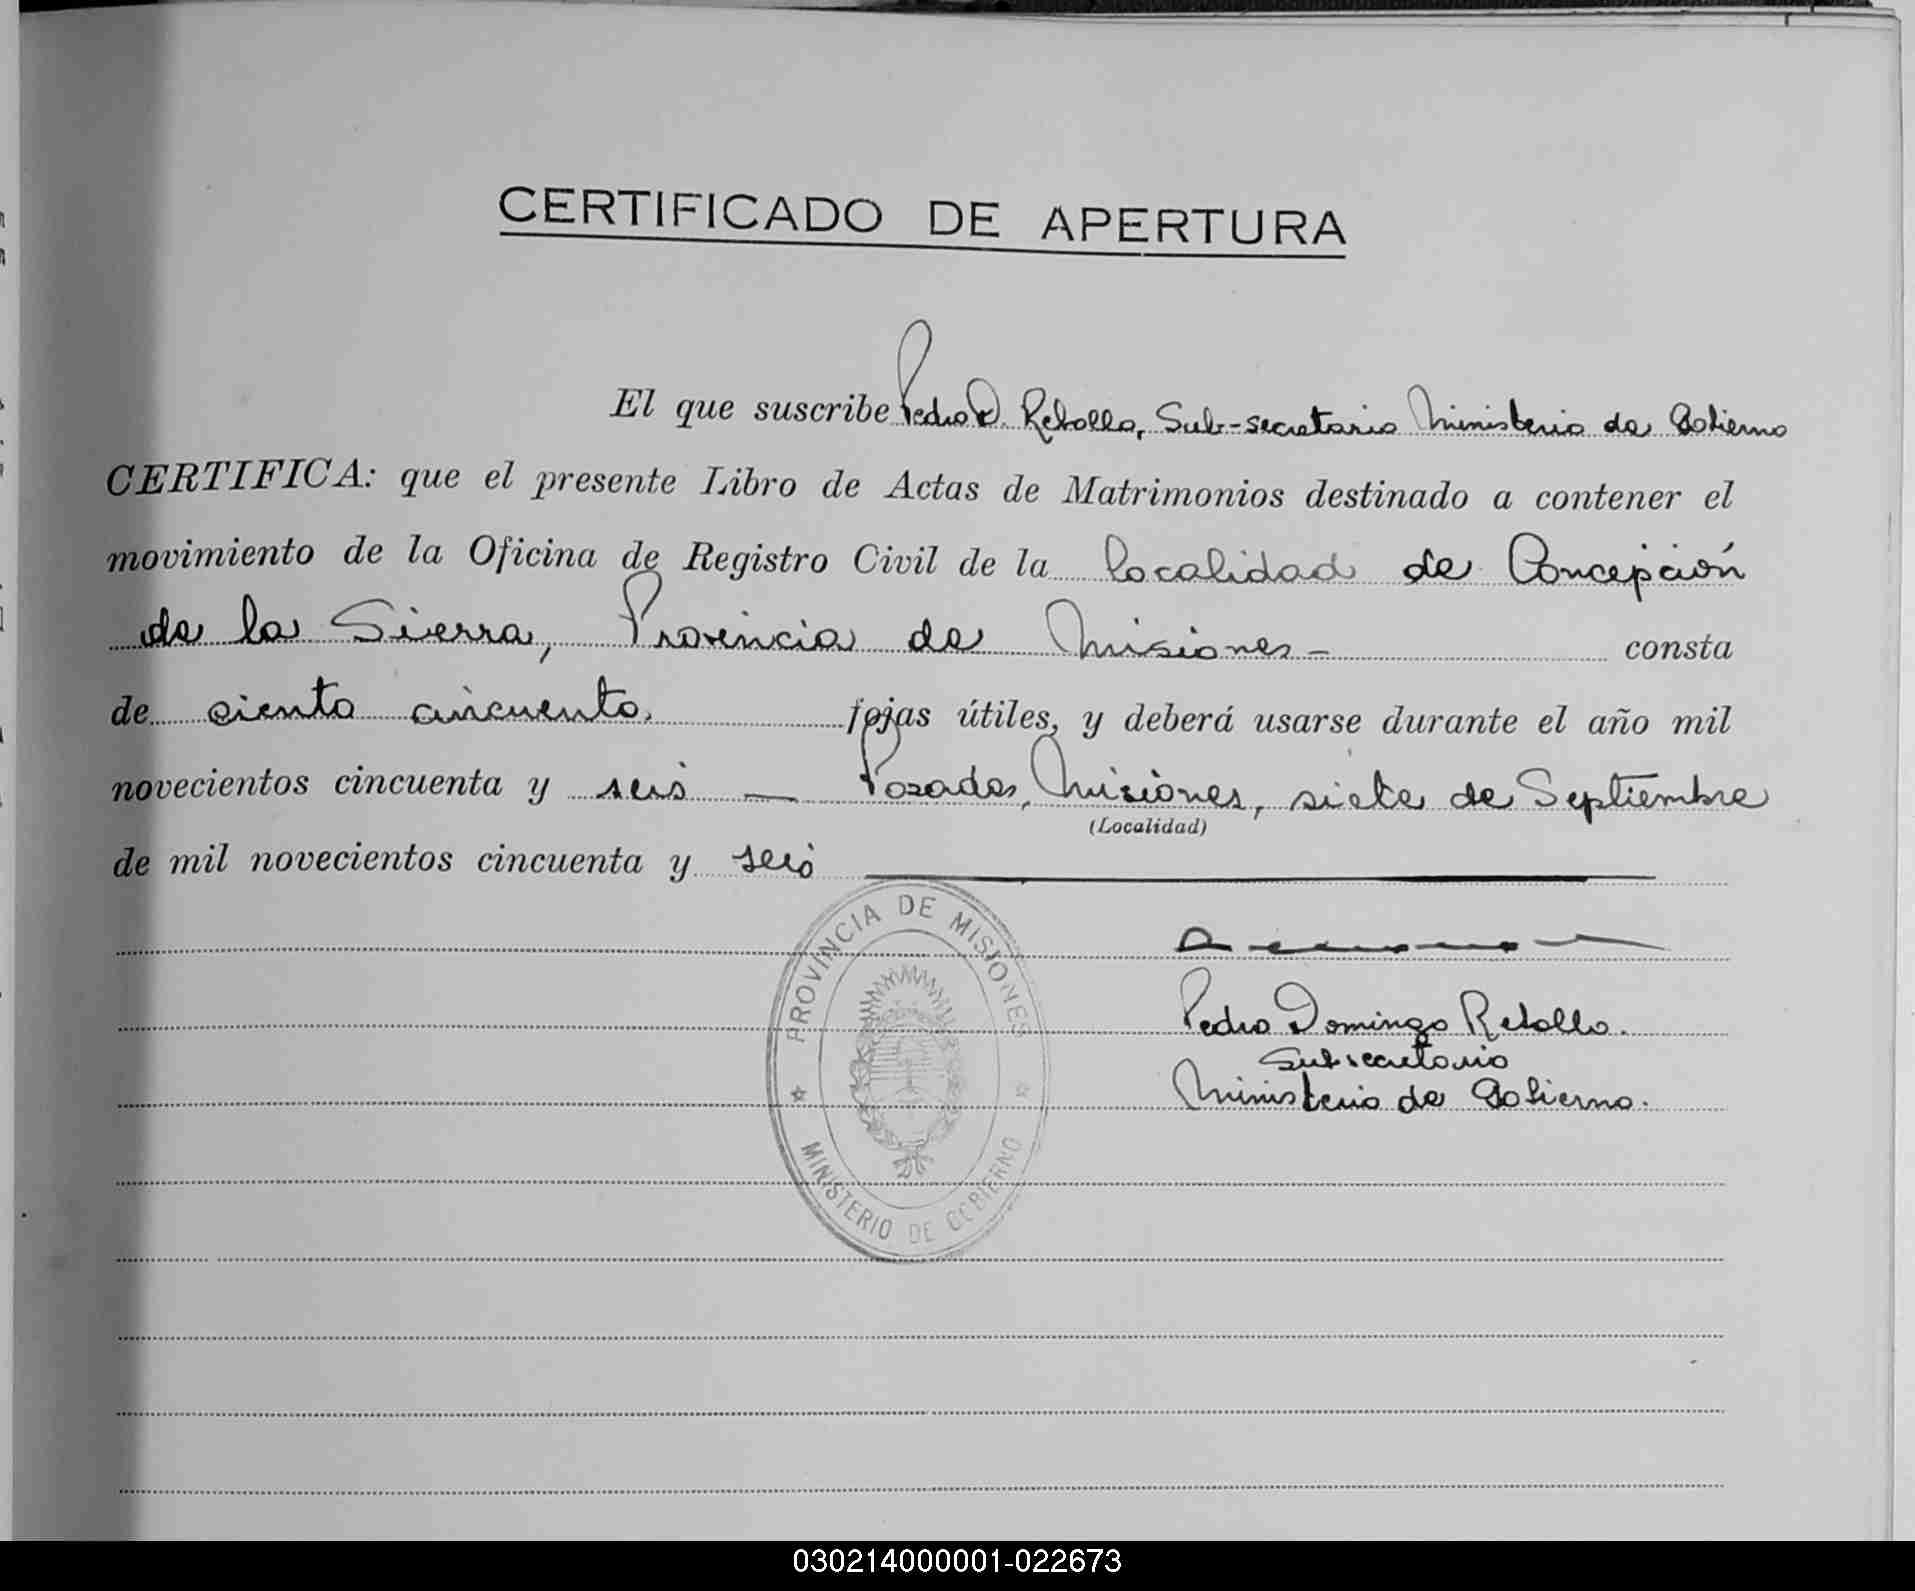 CERTIFICADO DE APERTURA
El que suscribe Pedro D. Rebollo, Sub-secretario Ministerio de Gobierno
CERTIFICA: que el presente Libro de Actas de Matrimonios destinado a contener el
movimiento de la Oficina de Registro Civil de la localidad de Concepción
de la Sierra, Provincia de Misiones - consta
de ciento cincuenta. fojas útiles, y deberá usarse durante el año mil
novecientos cincuenta y seis — Posadas, Misiones, siete de Septiembre
(Localidad)
de mil novecientos cincuenta y seis
PROVINCIA DE MISIONES
MINISTERIO DE GOBIERNO
Pedro Domingo Rebollo.
Subsecretario
Ministerio de Gobierno.
030214000001-022673